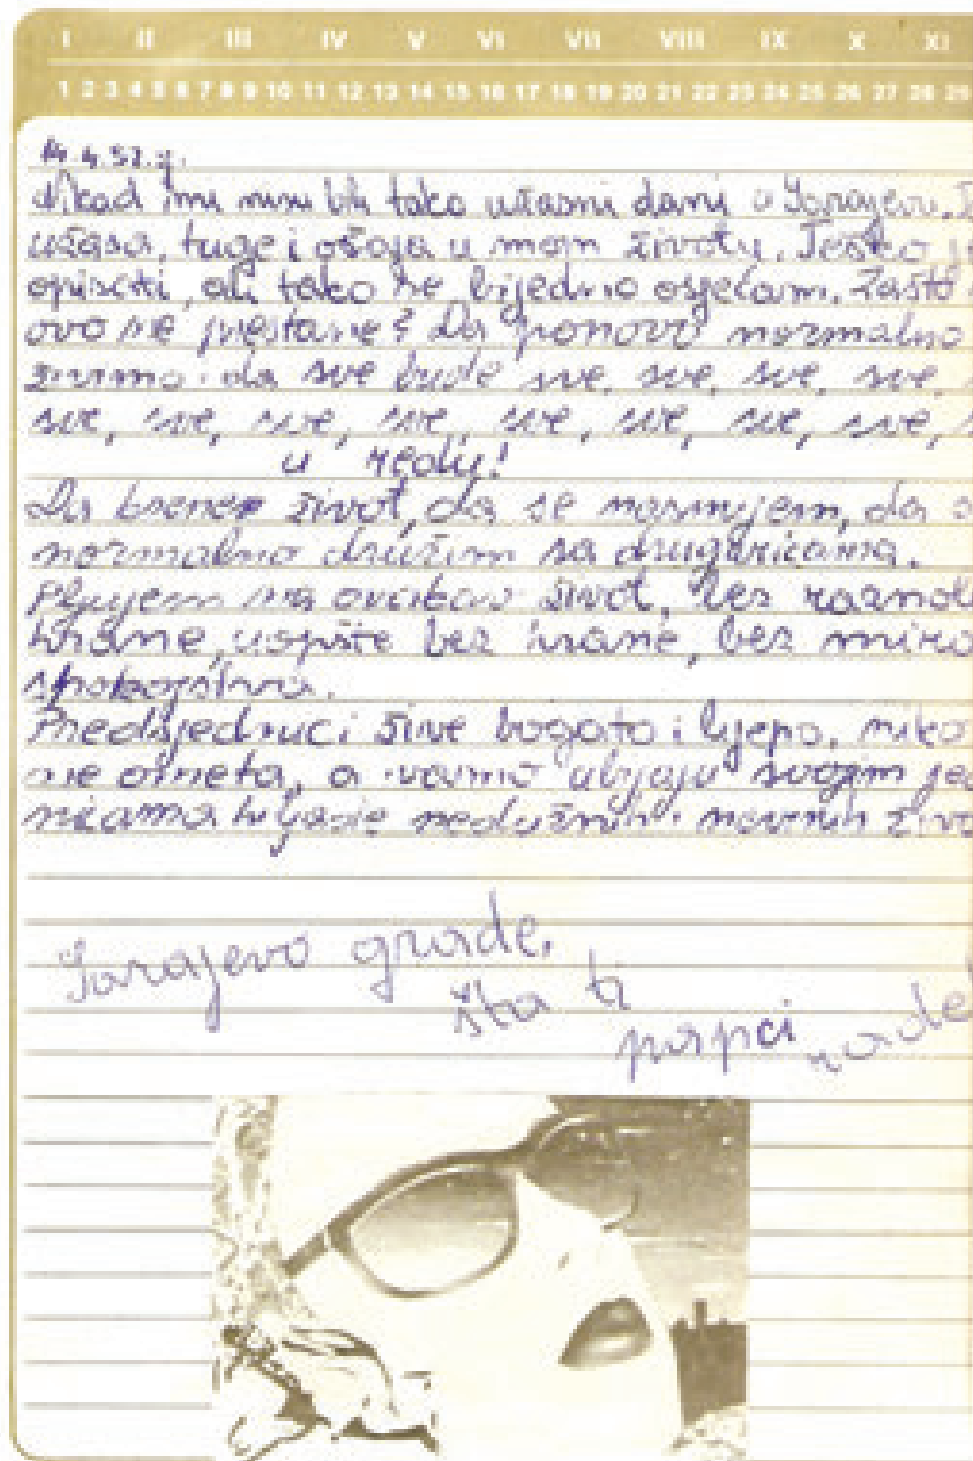 I II III IV V VI VII VIII IX X XI
1 2 3 4 5 6 7 8 9 10 11 12 13 14 15 16 17 18 19 20 21 22 23 24 25 26 27 28 29
Nikad mi nisu bili tako užasni dani u Sarajevu.
užasa, tuge i očaja u mom životu. Teško
opisati, ali tako se bijedno osjećam. Zašto
ovo ne prestane? Da ponovo normalno
živimo da sve bude sve, sve, sve, sve,
sve, sve, sve, sve, sve, sve, sve, sve,
u redu!
Da krene život, da se nasmijem, da
normalno družim sa drugaricama.
Pljujem na ovakav život, bez
hrane, uopšte bez hrane, bez
spokojstva.
Predsjednici žive bogato i lijepo, niko
ne ometa, a vamo ubijaju svojim
hiljade nedužnih i naivnih
Sarajevo grade,
šta ti
papci